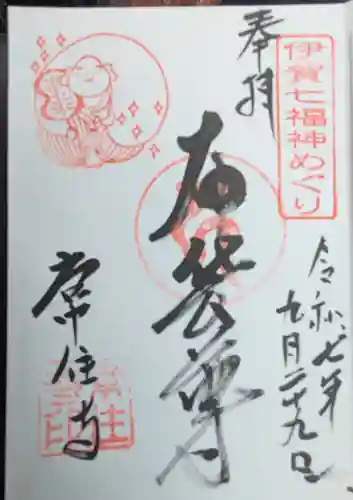 奉拝
伊賀七福神めぐり
令和七年
九月二十九日
布袋尊
常住寺